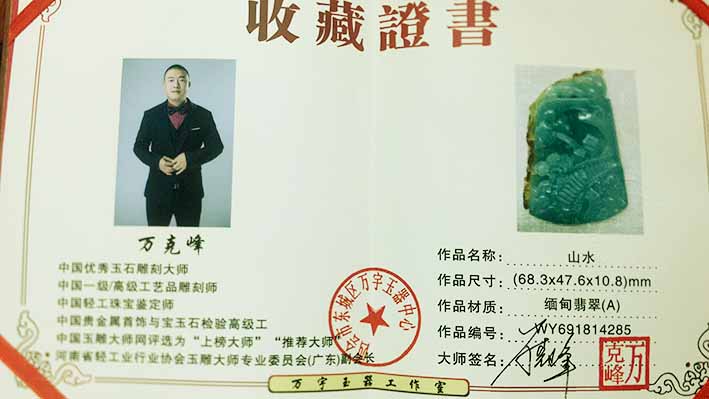 收藏證書
万克峰
中国优秀玉石雕刻大师
中国一级/高级工艺品雕刻师
中国轻工珠宝鉴定师
中国贵金属首饰与宝玉石检验高级工
中国玉雕大师网评选为“上榜大师”“推荐大师”
河南省轻工业行业协会玉雕大师专业委员会(广东)副会长
市东城区万宇玉器中心
作品名称: 山水
作品尺寸: (68.3x47.6x10.8)mm
作品材质: 缅甸翡翠(A)
作品编号: WY691814285
大师签名: 万克峰
万克峰
万宇玉器工作室